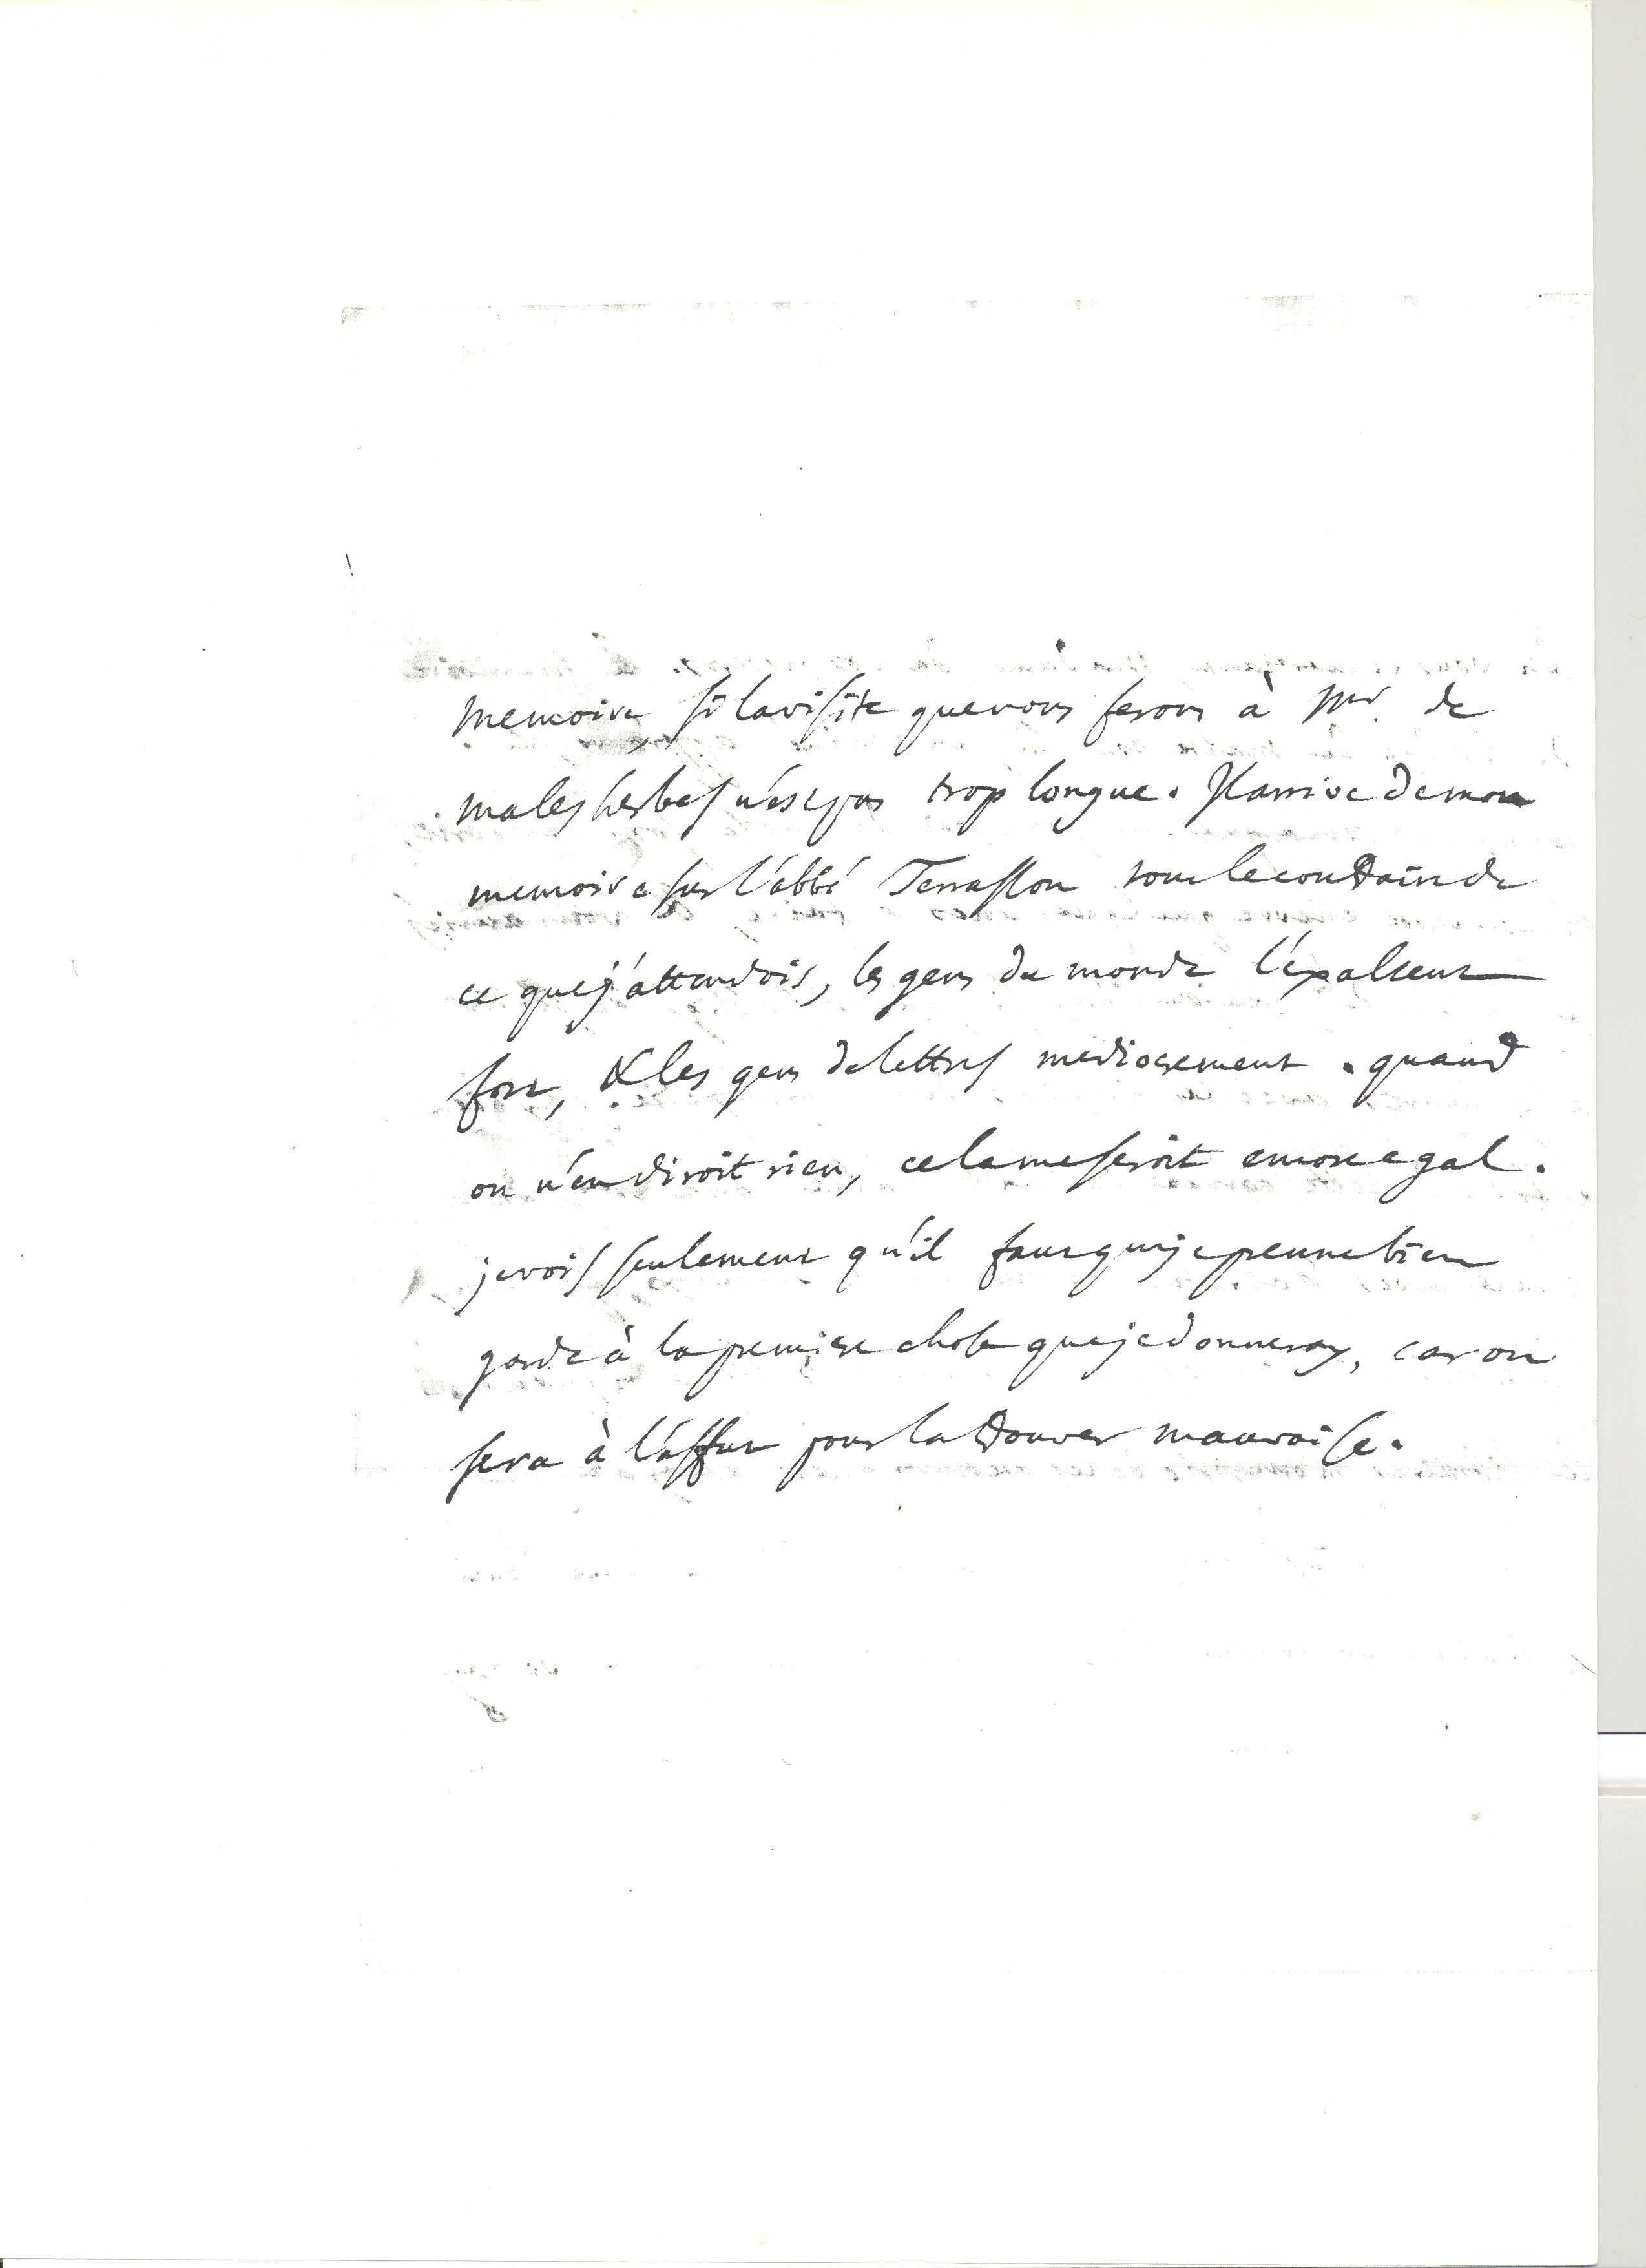 memoire, si la visite que nous ferons à Mr. de
malesherbes n'est pas trop longue. Il arrive de mon
memoire sur l'abbé Terrasson tout le contraire de
ce que j'attendois, les gens du monde l'exaltent
fort, & les gens de lettres mediocrement. quand
on n'en diroit rien, cela me seroit encore egal.
je vois seulement qu'il faut que je prenne bien
garde à la premiere chose que je donneray, car on
sera à l'affut pour la trouver mauvaise.